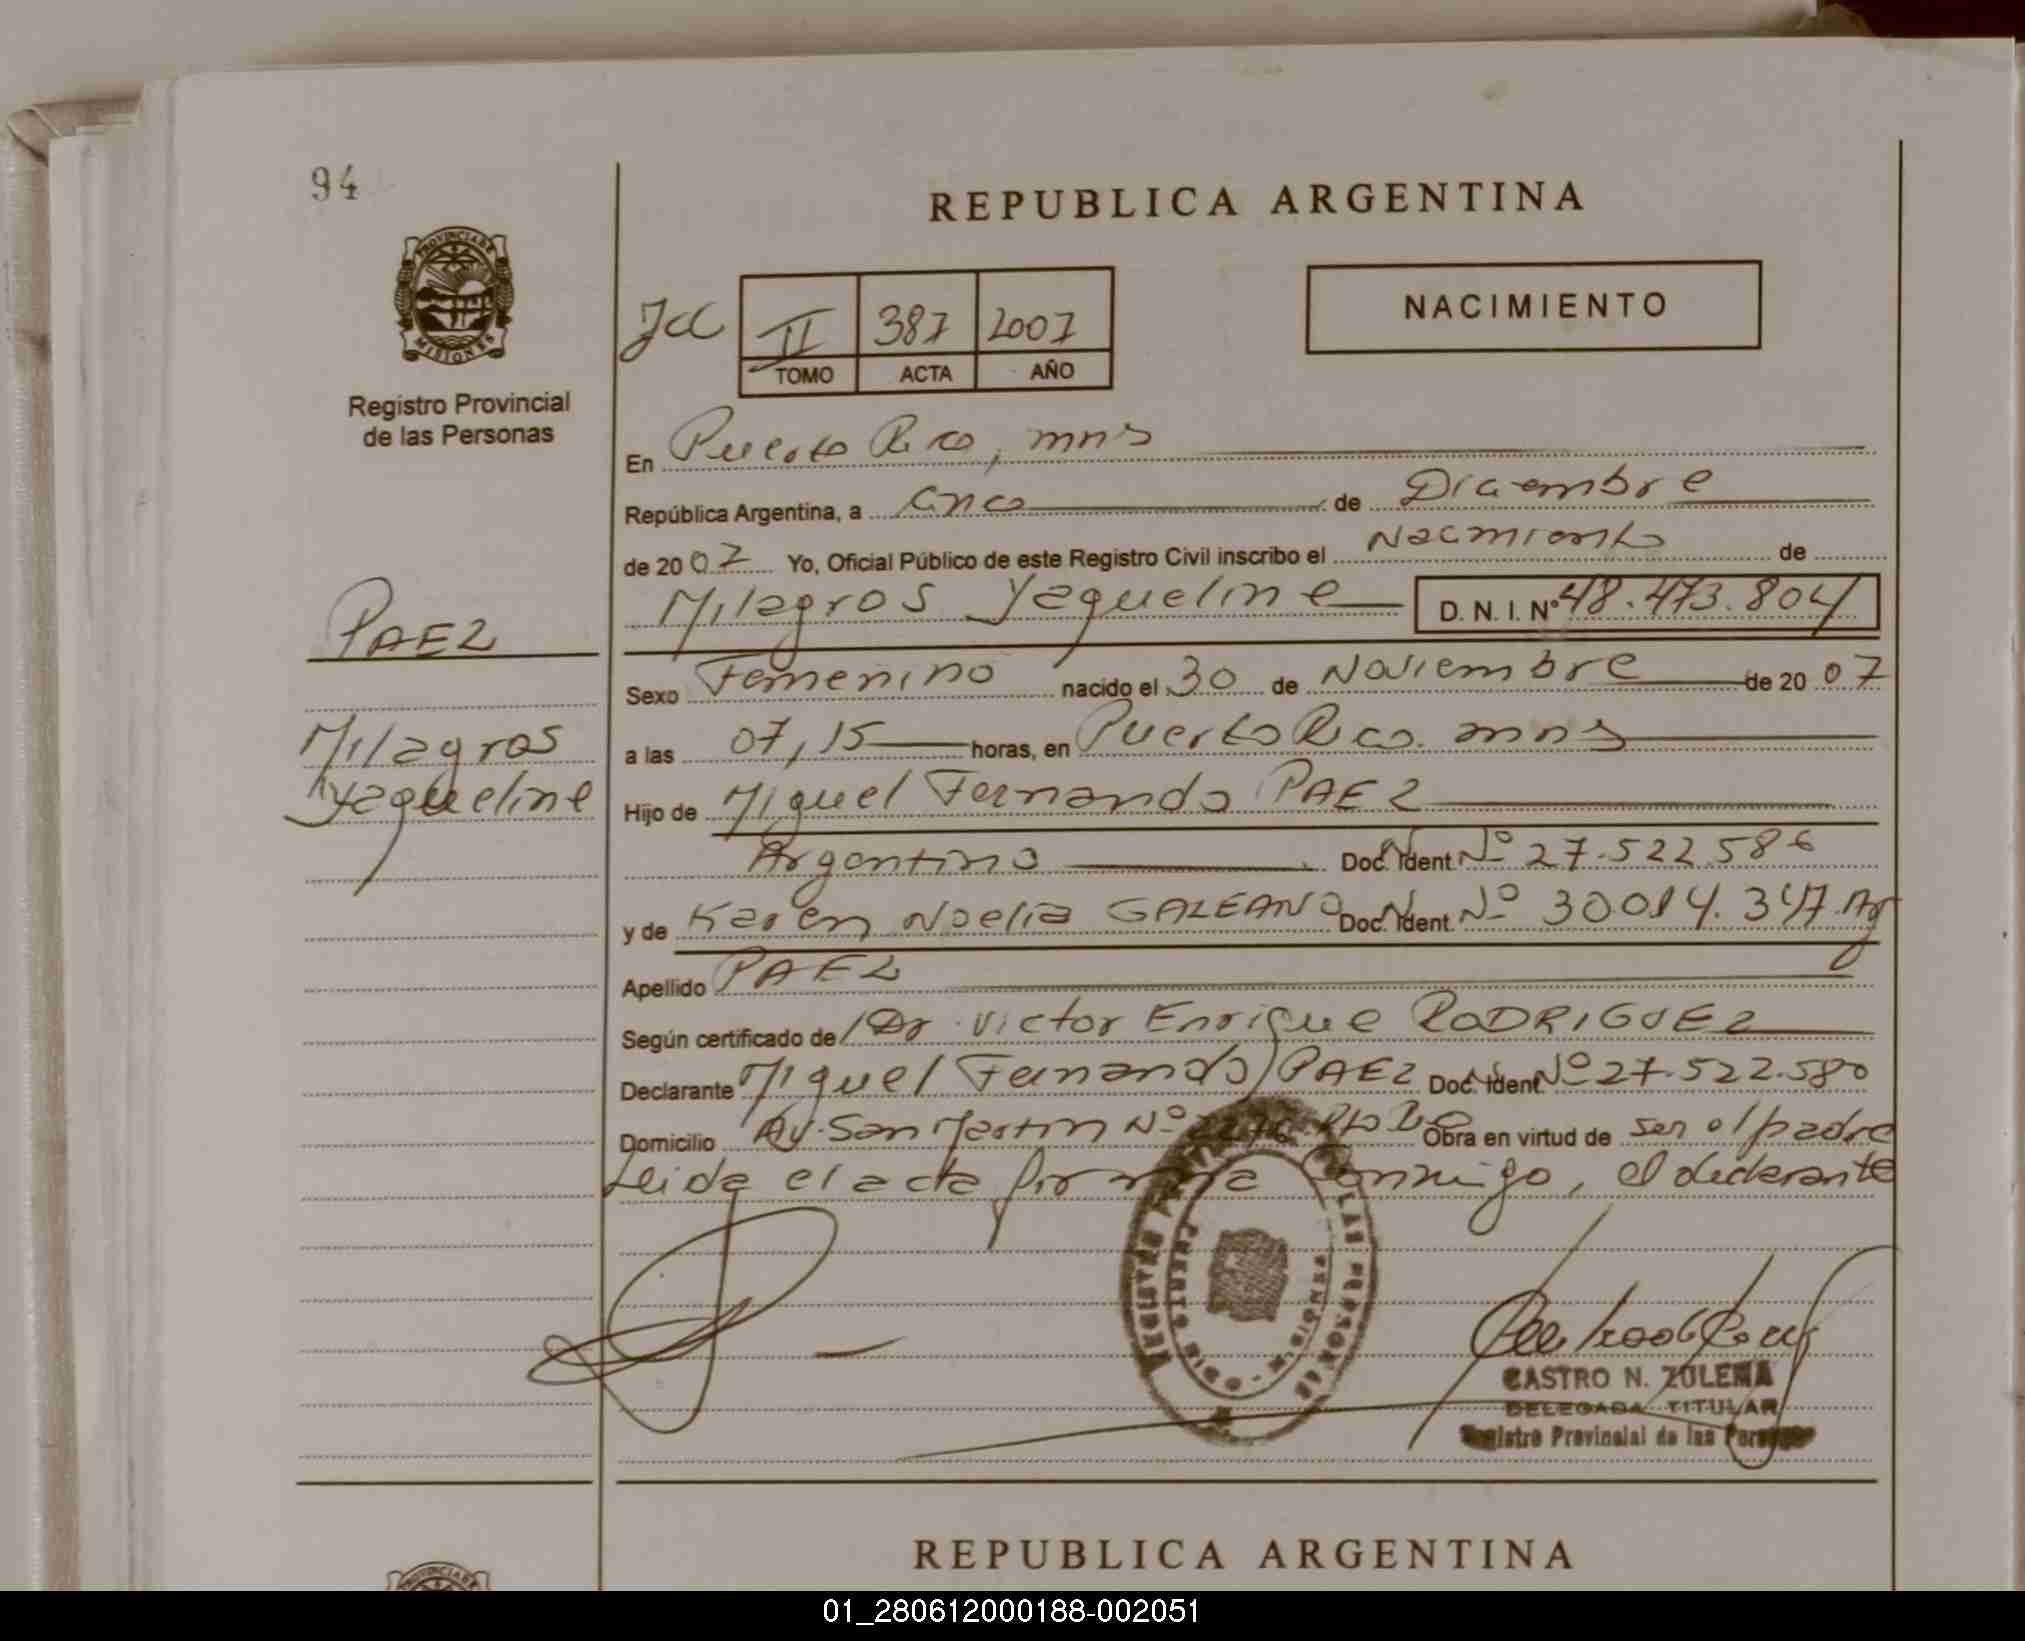 94
REPUBLICA ARGENTINA
PROVINCIA DE
MISIONES
Registro Provincial
de las Personas
II 387 2007
TOMO ACTA AÑO
NACIMIENTO
En Puerto Rico, mns
República Argentina, a cinco de Diciembre
de 2007 Yo, Oficial Público de este Registro Civil inscribo el Nacimiento de
Milagros Yaqueline D. N. I. Nº 48.473.804
PAEZ
Sexo Femenino nacido el 30 de Noviembre de 2007
Milagros
a las 07,15 horas, en Puerto Rico. mns
Yaqueline
Hijo de Miguel Fernando PAEZ
Argentino Doc. Ident. Nº 27.522.586
y de Karen Noelia GALEANO Doc. Ident. Nº 30.014.347. Arg
Apellido PAEZ
Según certificado de Dr. Victor Enrique RODRIGUEZ
Declarante Miguel Fernando PAEZ Doc. Ident Nº 27.522.580
Domicilio Av. San Martin Nº Obra en virtud de ser el padre
Leida el acta firma Conmigo, el declarante
CASTRO N. ZULEMA
DELEGADA TITULAR
Registro Provincial de las Personas
REPUBLICA ARGENTINA
01_280612000188-002051